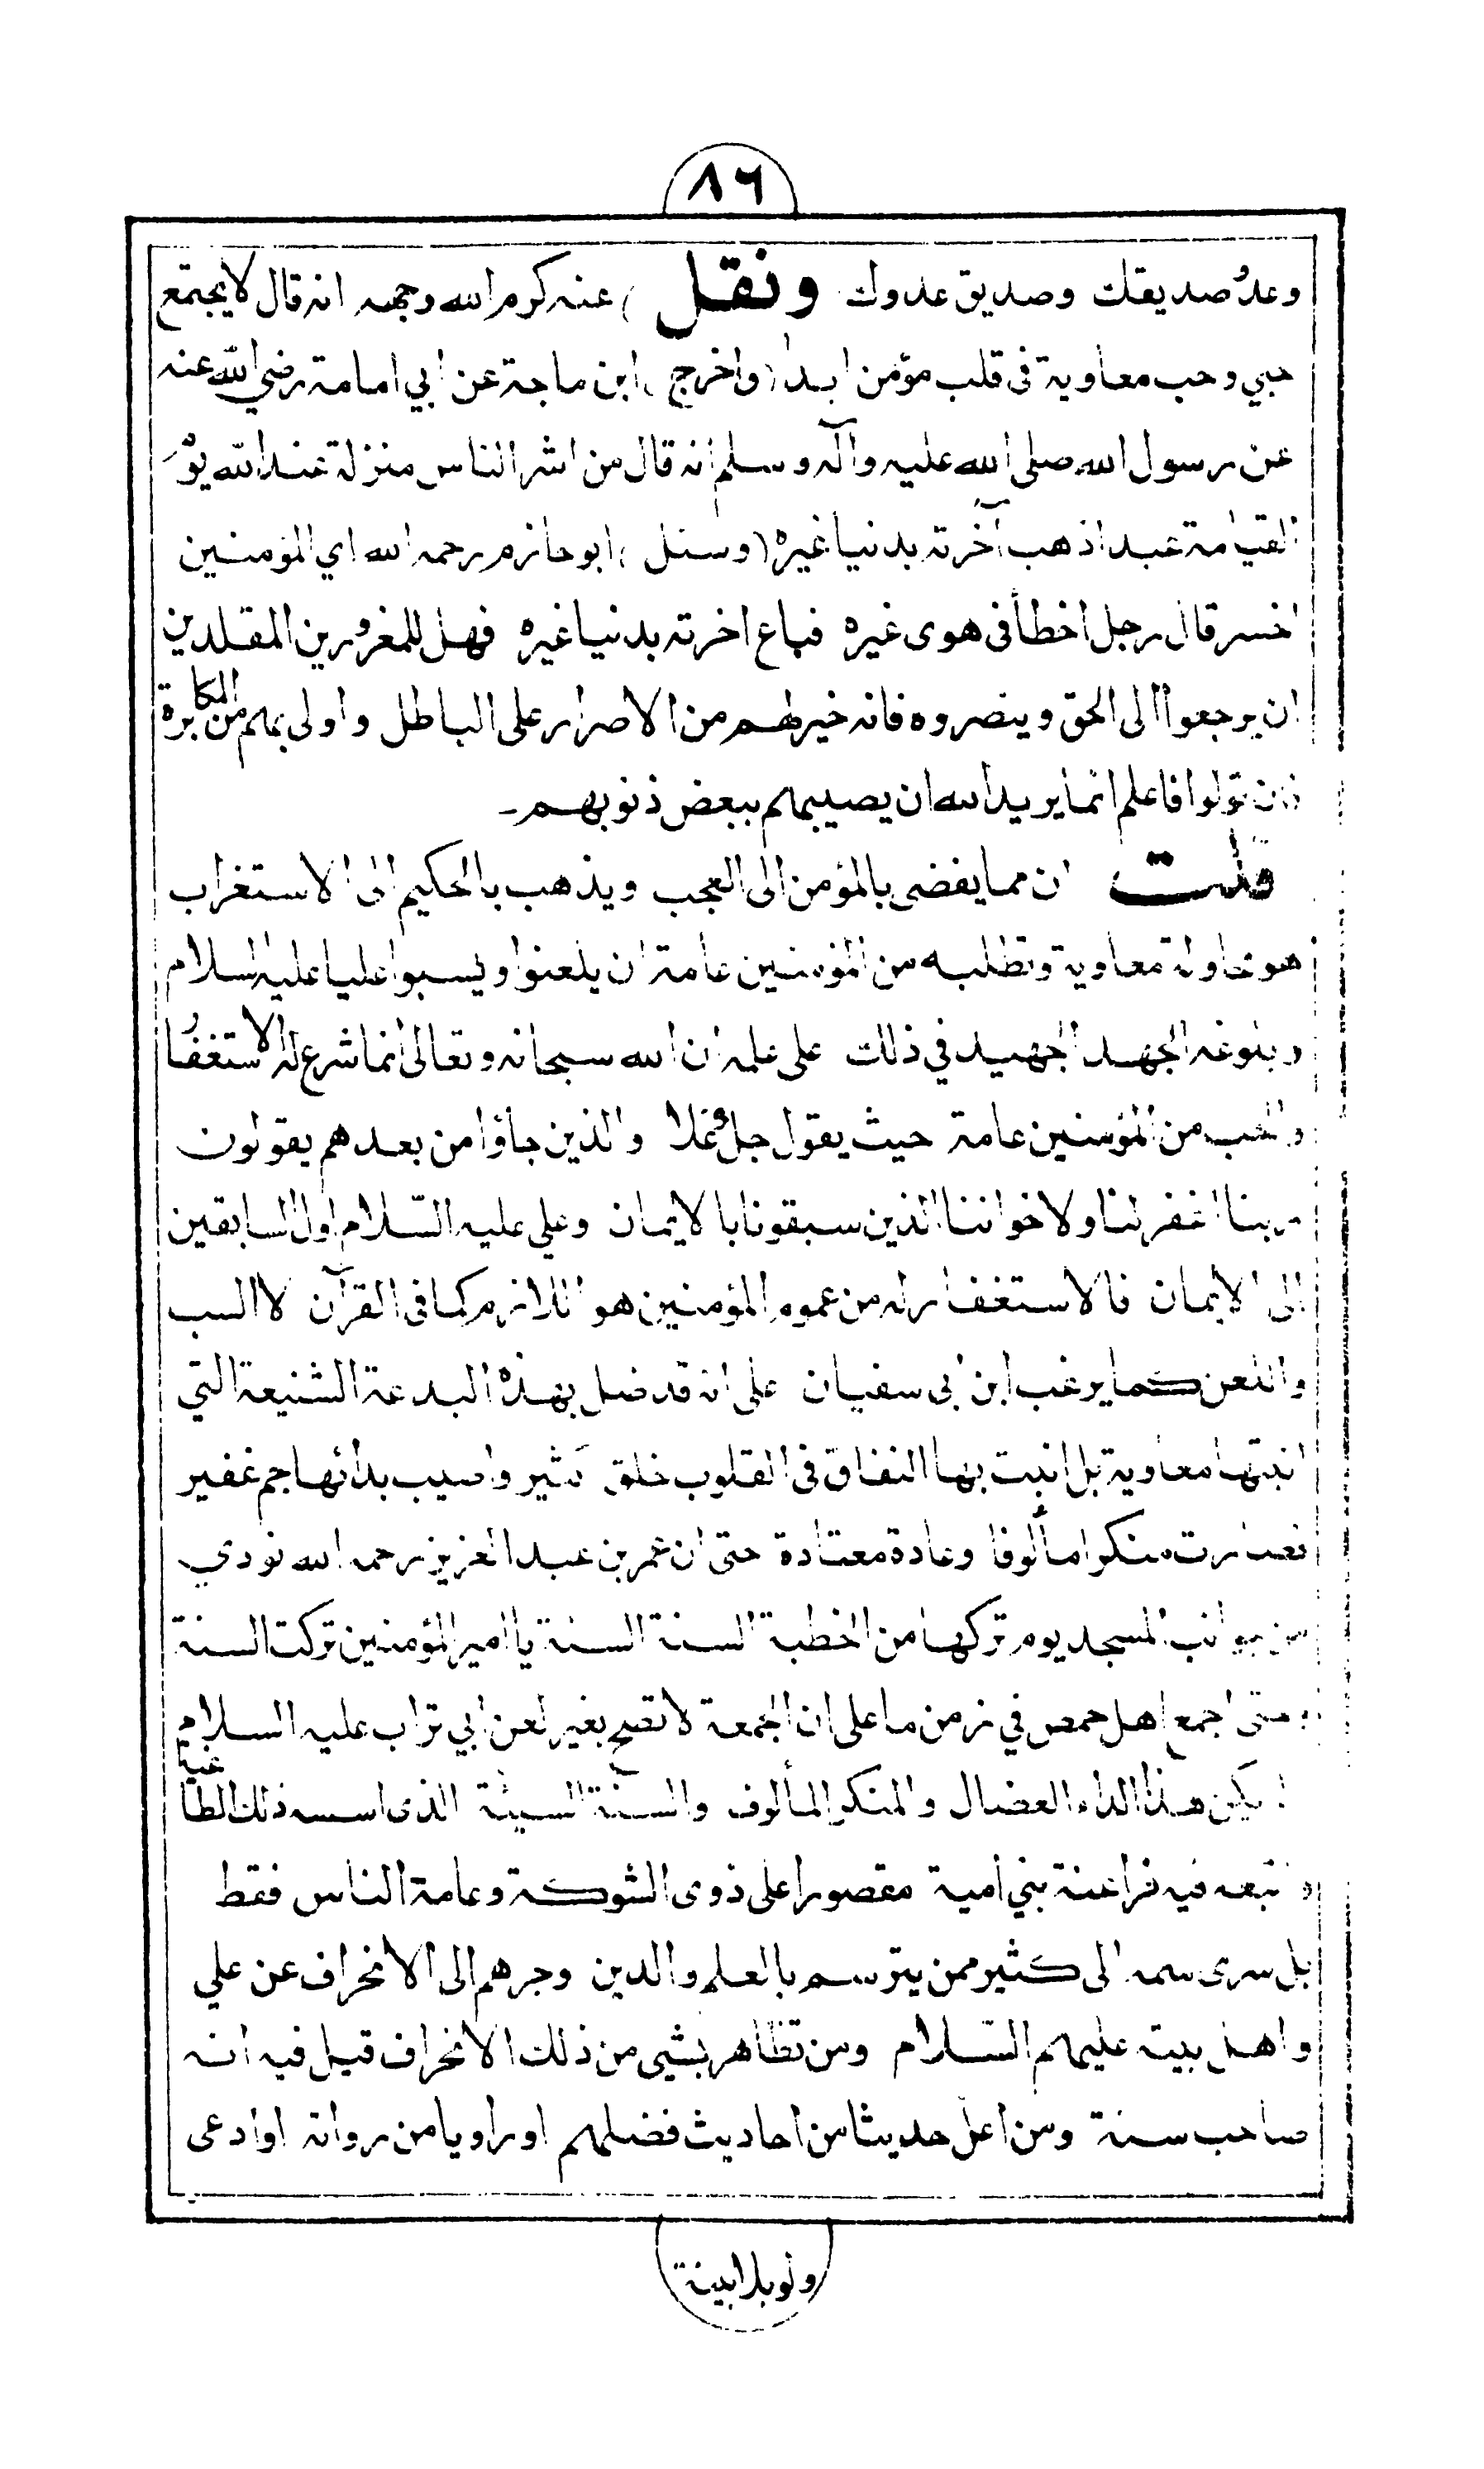 ٨٦
وعدُو صديقك وصديق عدوك (ونقل) عنه كرم الله وجهه انه قال لا يجتمع
حبي وحب معاوية فى قلب مؤمن ابدا (واخرج) ابن ماجة عن ابي امامة رضي الله عنه
عن رسول الله صلى الله عليه وآله وسلم انه قال من اشر الناس منزلة عند الله يوْمَ
القيامة عبد اذهب آخرته بدنيا غيره (وسئل) ابو حازم رحمه الله اي المؤمنين
اخسر قال رجل اخطأ فى هوى غيره فباع اخرته بدنيا غيره فهل للمغرورين المقلدين
ان يرجعوا الى الحق وينصروه فانه خير لهم من الاصرار على الباطل واولى بهم من المكابرة
فان تولوا فاعلم انما يريد الله ان يصيبهم ببعض ذنوبهم ـ
قلت ان مما يفضى بالمؤمن الى العجب ويذهب بالحكيم الى الاستغراب
هو محاولة معاوية وتطلبه من المؤمنين عامة ان يلعنوا ويسبوا عليا عليه السلام
وبلوغه الجهد الجهيد في ذلك على علمه ان الله سبحانه وتعالى انما شرع له الاستغفار
والحب من المؤمنين عامة حيث يقول جل وعلا والذين جاؤا من بعدهم يقولون
ربنا اغفر لنا ولاخواننا الذين سبقونا بالايمان وعلي عليه السّلام اول السابقين
الى الايمان فالاستغفار له من عموم المؤمنين هو اللازم كما فى القرآن لا السب
واللعن كما يرغب ابن ابى سفيان على انه قد ضل بهذه البدعة الشنيعة التي
انبتها معاوية بل انبت بها النفاق فى القلوب خلق كثير واصيب بدائها جم غفير
فصارت منكرا مألوفا وعادة معتادة حتى ان عمر بن عبد العزيز رحمه الله نودي
من جوانب المسجد يوم تركها من الخطبة السنة السنة يا امير المؤمنين تركت السنة
وحتى اجمع اهل حمص في زمن ما على ان الجمعة لا تصح بغير لعن ابي تراب عليه السلام
لم يكن هذا الداء العضال والمنكر المألوف والسنة السيئة الذى اسسه ذلك الطاغية
واتبعه فيه فراعنة بني امية مقصورا على ذوى الشوكة وعامة الناس فقط
بل سرى سمه الى كثير ممن يترسم بالعلم والدين وجرهم الى الانحراف عن علي
واهل بيته عليهم السّلام ومن تظاهر بشيى من ذلك الانحراف قيل فيه انه
صاحب سنة ومن اعل حديثا من احاديث فضلهم او راويا من رواته او ادعى
ولو بلا بينة